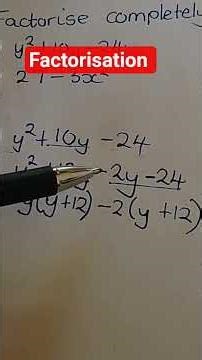 Factorise completely
Factorisation
y²+10y -24
-2y -24
y(y+12) -2(y+12)